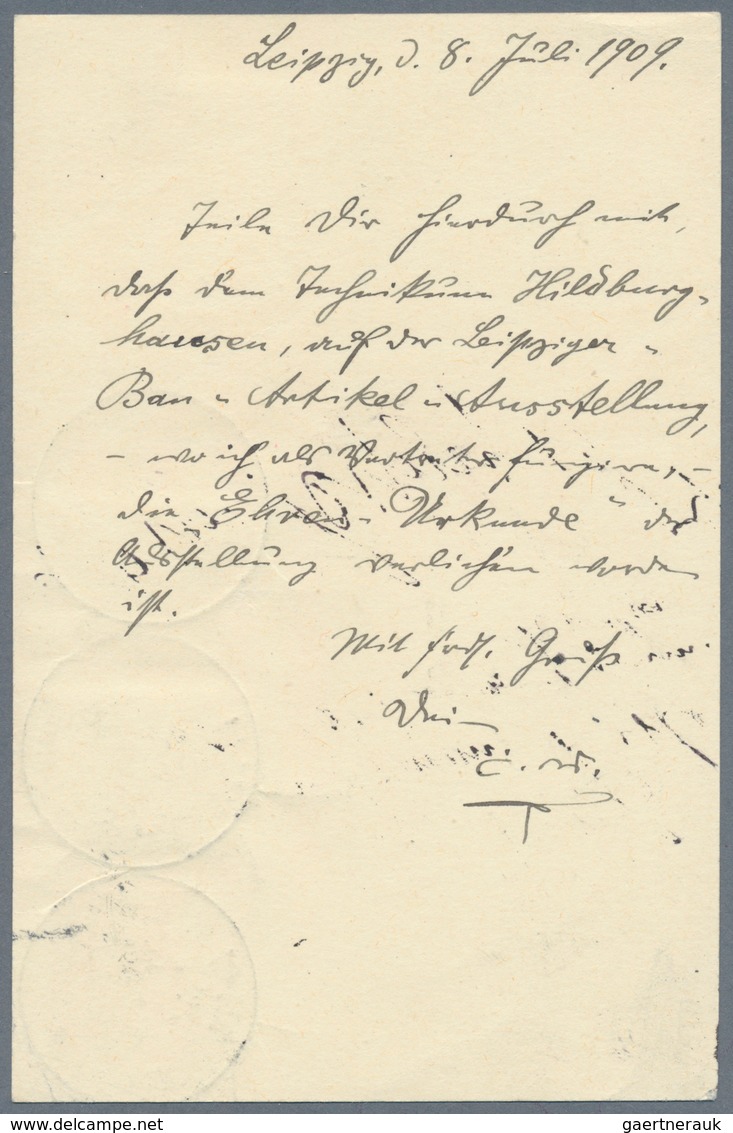 Leipzig, d. 8. Juli 1909.
Teile Dir hierdurch mit,
daß dem Technikum Hildburg-
hausen, auf der Leipziger-
Bau- Artikel- Ausstellung,
- wo ich als Vertreter fungiere, -
die „Ehren-Urkunde" der
Ausstellung verliehen worden
ist.
Mit frdl. Gruß
Dein
delcampe.net
gaertnerauk